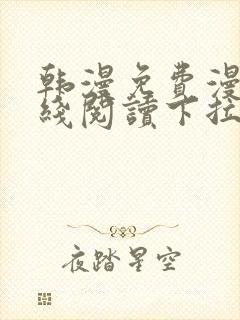 韩漫免費漫
綫閱讀下拉
夜踏星空